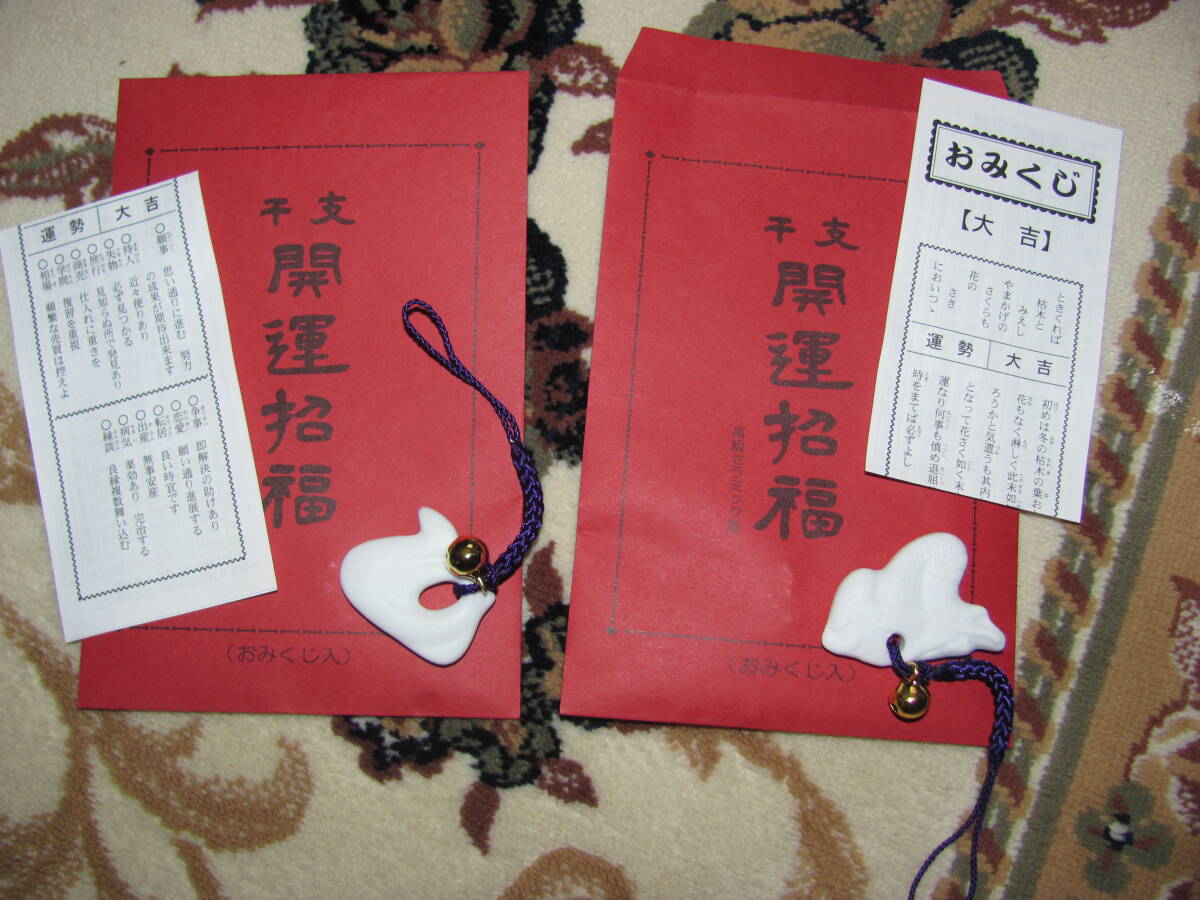 干支
開運招福
(おみくじ入)
運勢 大吉
○願事 思い通りに進む 努力
の成果が期待出来ます
○待人 近々便りあり
○失物 必ず見つかる
○旅行 見知らぬ所で発見あり
○商売 仕入れに重きを
○学問 復習を重視
○相場 頻繁な売買は控えよ
○争事 即解決の助けあり
○恋愛 願い通り進展する
○転居 良い時宜です
○出産 無事安産
○病気 薬効あり 完治する
○縁談 良縁複数舞い込む
干支
開運招福
高級セラミック
(おみくじ入)
おみくじ
【大吉】
ときくれば
枯木と
みえし
やまかげの
さくらも
花の
さき
においつゝ
運勢 大吉
初めは冬の枯木の葉お
花もなく淋しく此末如
ろうかと気遣うも其内
となって花さく如く末
運なり何事も慎め退屈
時をまてば必ずよし